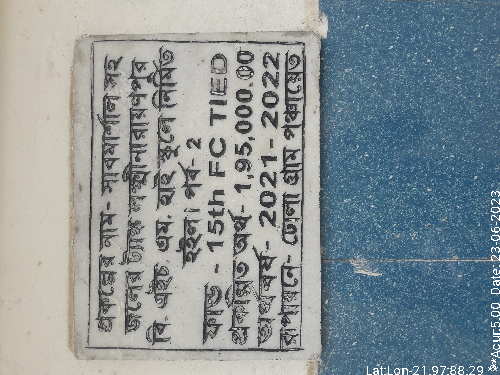 প্রকল্পের নাম- সাবমার্শাল সহ
জলের ট্যাঙ্ক লক্ষ্মীনারায়ণপুর
বি. এইচ. এম. হাই স্কুলে নির্মিত
হইল। পর্ব- 2
ফান্ড - 15th FC TIED
প্রকল্পিত অর্থ- 1,95,000.00
অর্থবর্ষ- 2021-2022
রূপায়নে- ঢোলা গ্রাম পঞ্চায়েত
Lat:Lon-21.97:88.29
Acur:5.00 Date: 23-06-2023